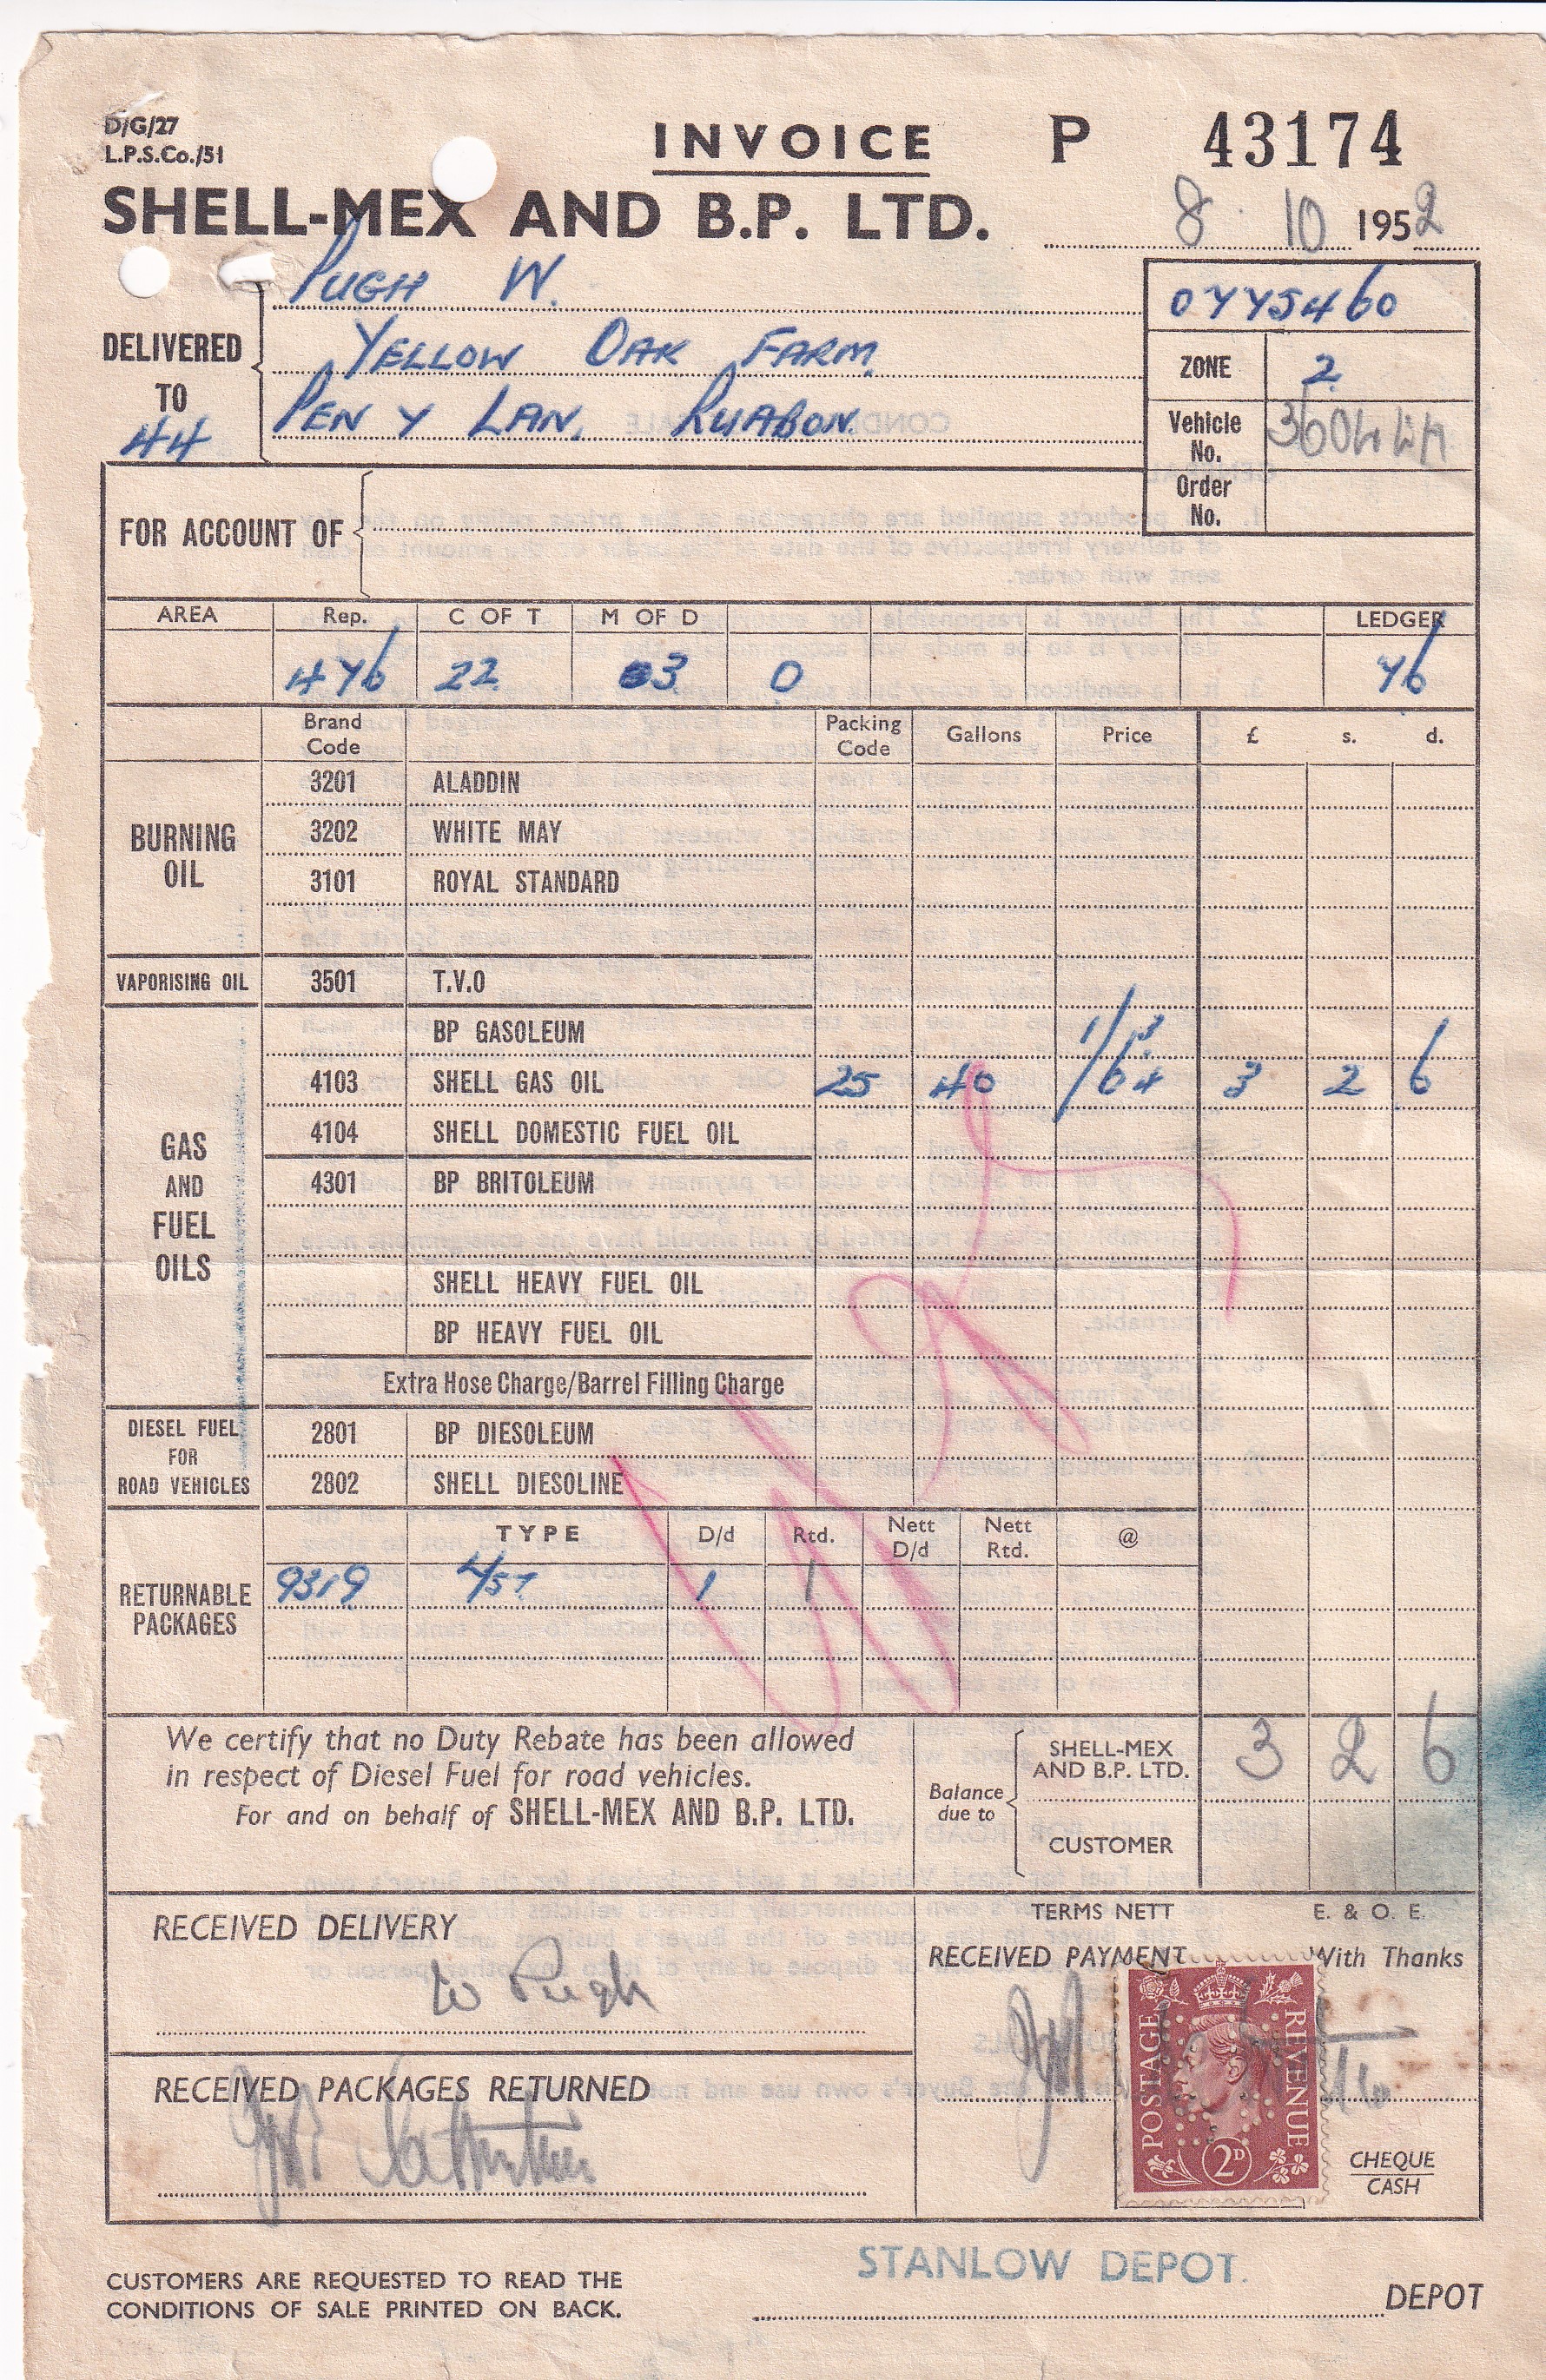 D/G/27
L.P.S.Co./51
INVOICE P 43174
SHELL-MEX AND B.P. LTD.
8 10 1952
DELIVERED TO
44
PUGH W.
YELLOW OAK FARM.
PEN Y LAN, RUABON.
0775460
ZONE 2
Vehicle No.
Order No.
FOR ACCOUNT OF
AREA Rep. C OF T M OF D LEDGER
476 22 03 0 76
Brand Code Packing Code Gallons Price £ s. d.
BURNING OIL
3201 ALADDIN
3202 WHITE MAY
3101 ROYAL STANDARD
VAPORISING OIL 3501 T.V.O
GAS AND FUEL OILS
BP GASOLEUM
4103 SHELL GAS OIL 25 40 3 2 6
4104 SHELL DOMESTIC FUEL OIL
4301 BP BRITOLEUM
SHELL HEAVY FUEL OIL
BP HEAVY FUEL OIL
Extra Hose Charge/Barrel Filling Charge
DIESEL FUEL FOR ROAD VEHICLES
2801 BP DIESOLEUM
2802 SHELL DIESOLINE
RETURNABLE PACKAGES
TYPE D/d Rtd. Nett D/d Nett Rtd. @
9319 1 1
We certify that no Duty Rebate has been allowed
in respect of Diesel Fuel for road vehicles.
For and on behalf of SHELL-MEX AND B.P. LTD.
Balance due to
SHELL-MEX AND B.P. LTD. 3 2 6
CUSTOMER
RECEIVED DELIVERY
W Pugh
TERMS NETT E. & O. E.
RECEIVED PAYMENT With Thanks
POSTAGE REVENUE
2D
CHEQUE
CASH
RECEIVED PACKAGES RETURNED
STANLOW DEPOT.
DEPOT
CUSTOMERS ARE REQUESTED TO READ THE
CONDITIONS OF SALE PRINTED ON BACK.